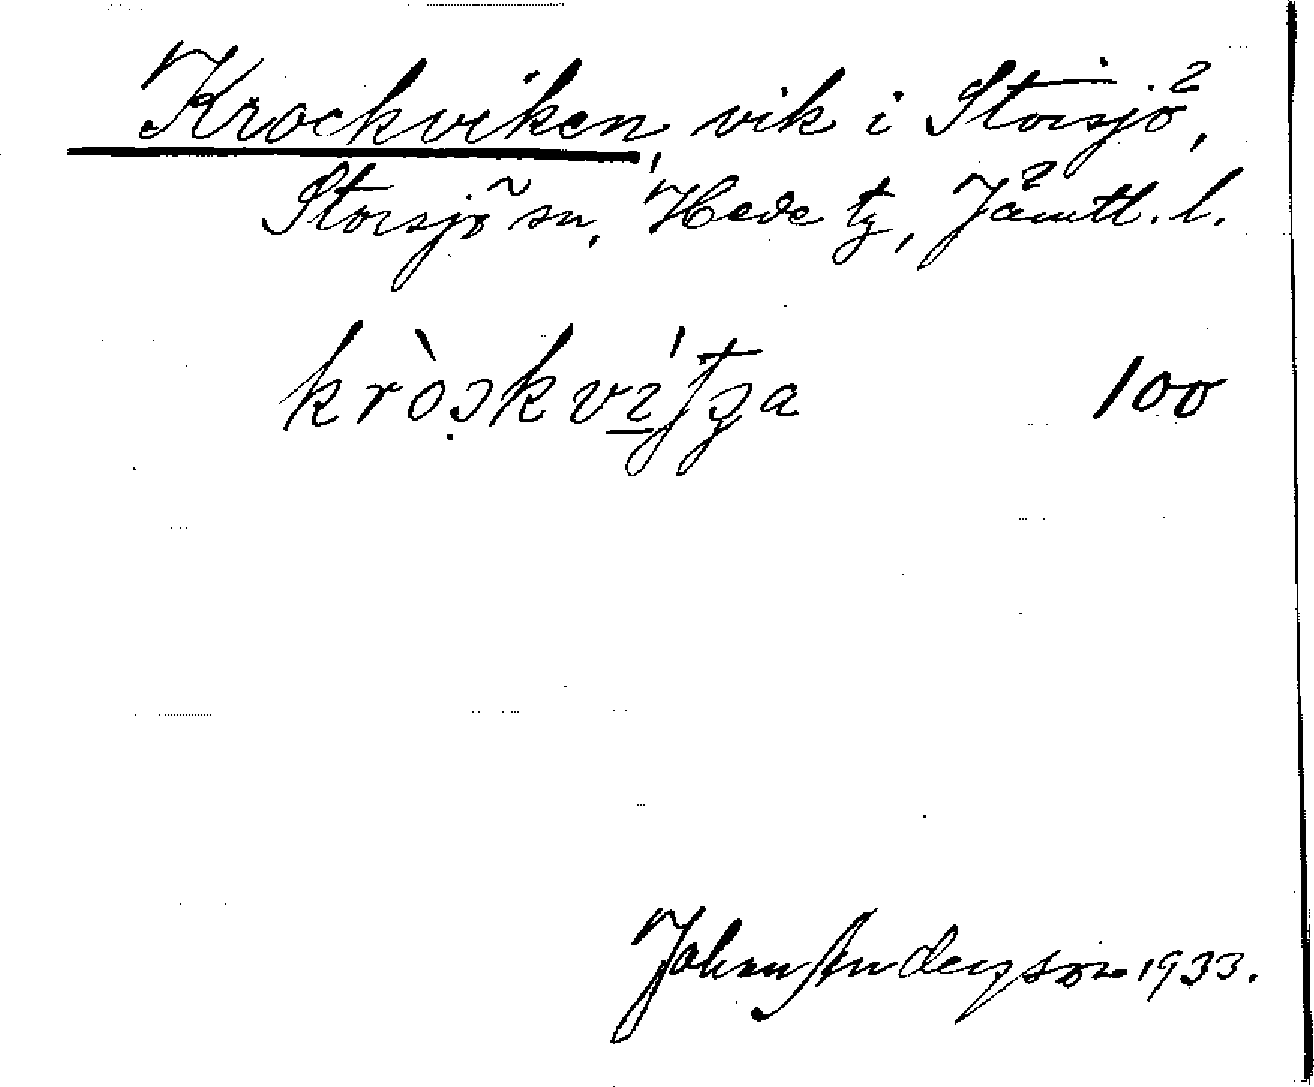 Krockviken, vik i Storsjö,
Storsjö sn, Hede tg, Jämtl. l.
100
Johan Anderson 1933.